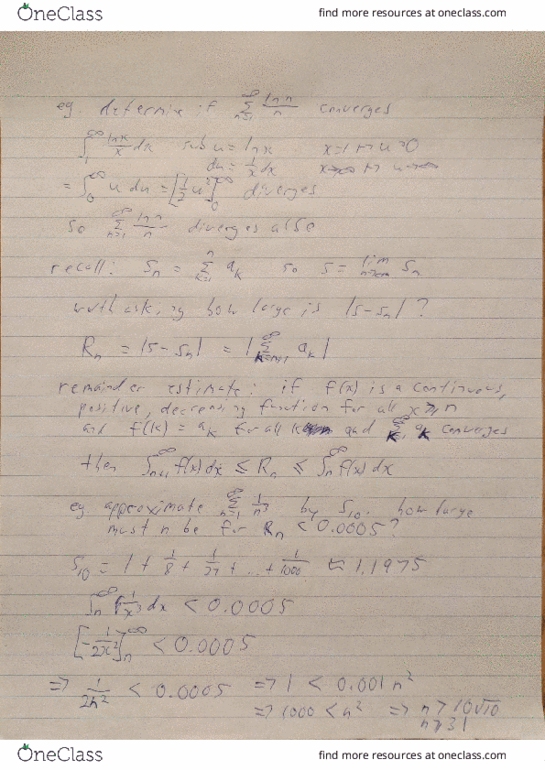 OneClass
find more resources at oneclass.com
eg. determine if ∑_{n=1}^{∞} ln n / n converges
∫_1^∞ ln x / x dx sub u = ln x x=1 ↦ u=0
du = 1/x dx x→∞ ↦ u→∞
= ∫_0^∞ u du = [1/2 u²]_0^∞ diverges
so ∑_{n=1}^{∞} ln n / n diverges also
recall: S_n = ∑_{k=1}^{n} a_k so S = lim_{n→∞} S_n
worth asking how large is |S-S_n| ?
R_n = |S-S_n| = |∑_{k=n+1}^{∞} a_k|
remainder estimate: if f(x) is a continuous,
positive, decreasing function for all x ≥ n
and f(k) = a_k for all k and ∑ a_k converges
then ∫_{n+1}^∞ f(x) dx ≤ R_n ≤ ∫_n^∞ f(x) dx
eg approximate ∑_{n=1}^{∞} 1/n³ by S_10. how large
must n be for R_n < 0.0005?
S_10 = 1 + 1/8 + 1/27 + ... + 1/1000 ≈ 1.1975
∫_n^∞ 1/x³ dx < 0.0005
[-1/2x²]_n^∞ < 0.0005
⇒ 1/2n² < 0.0005 ⇒ 1 < 0.001 n²
⇒ 1000 < n² ⇒ n > 10√10
n > 31
OneClass
find more resources at oneclass.com